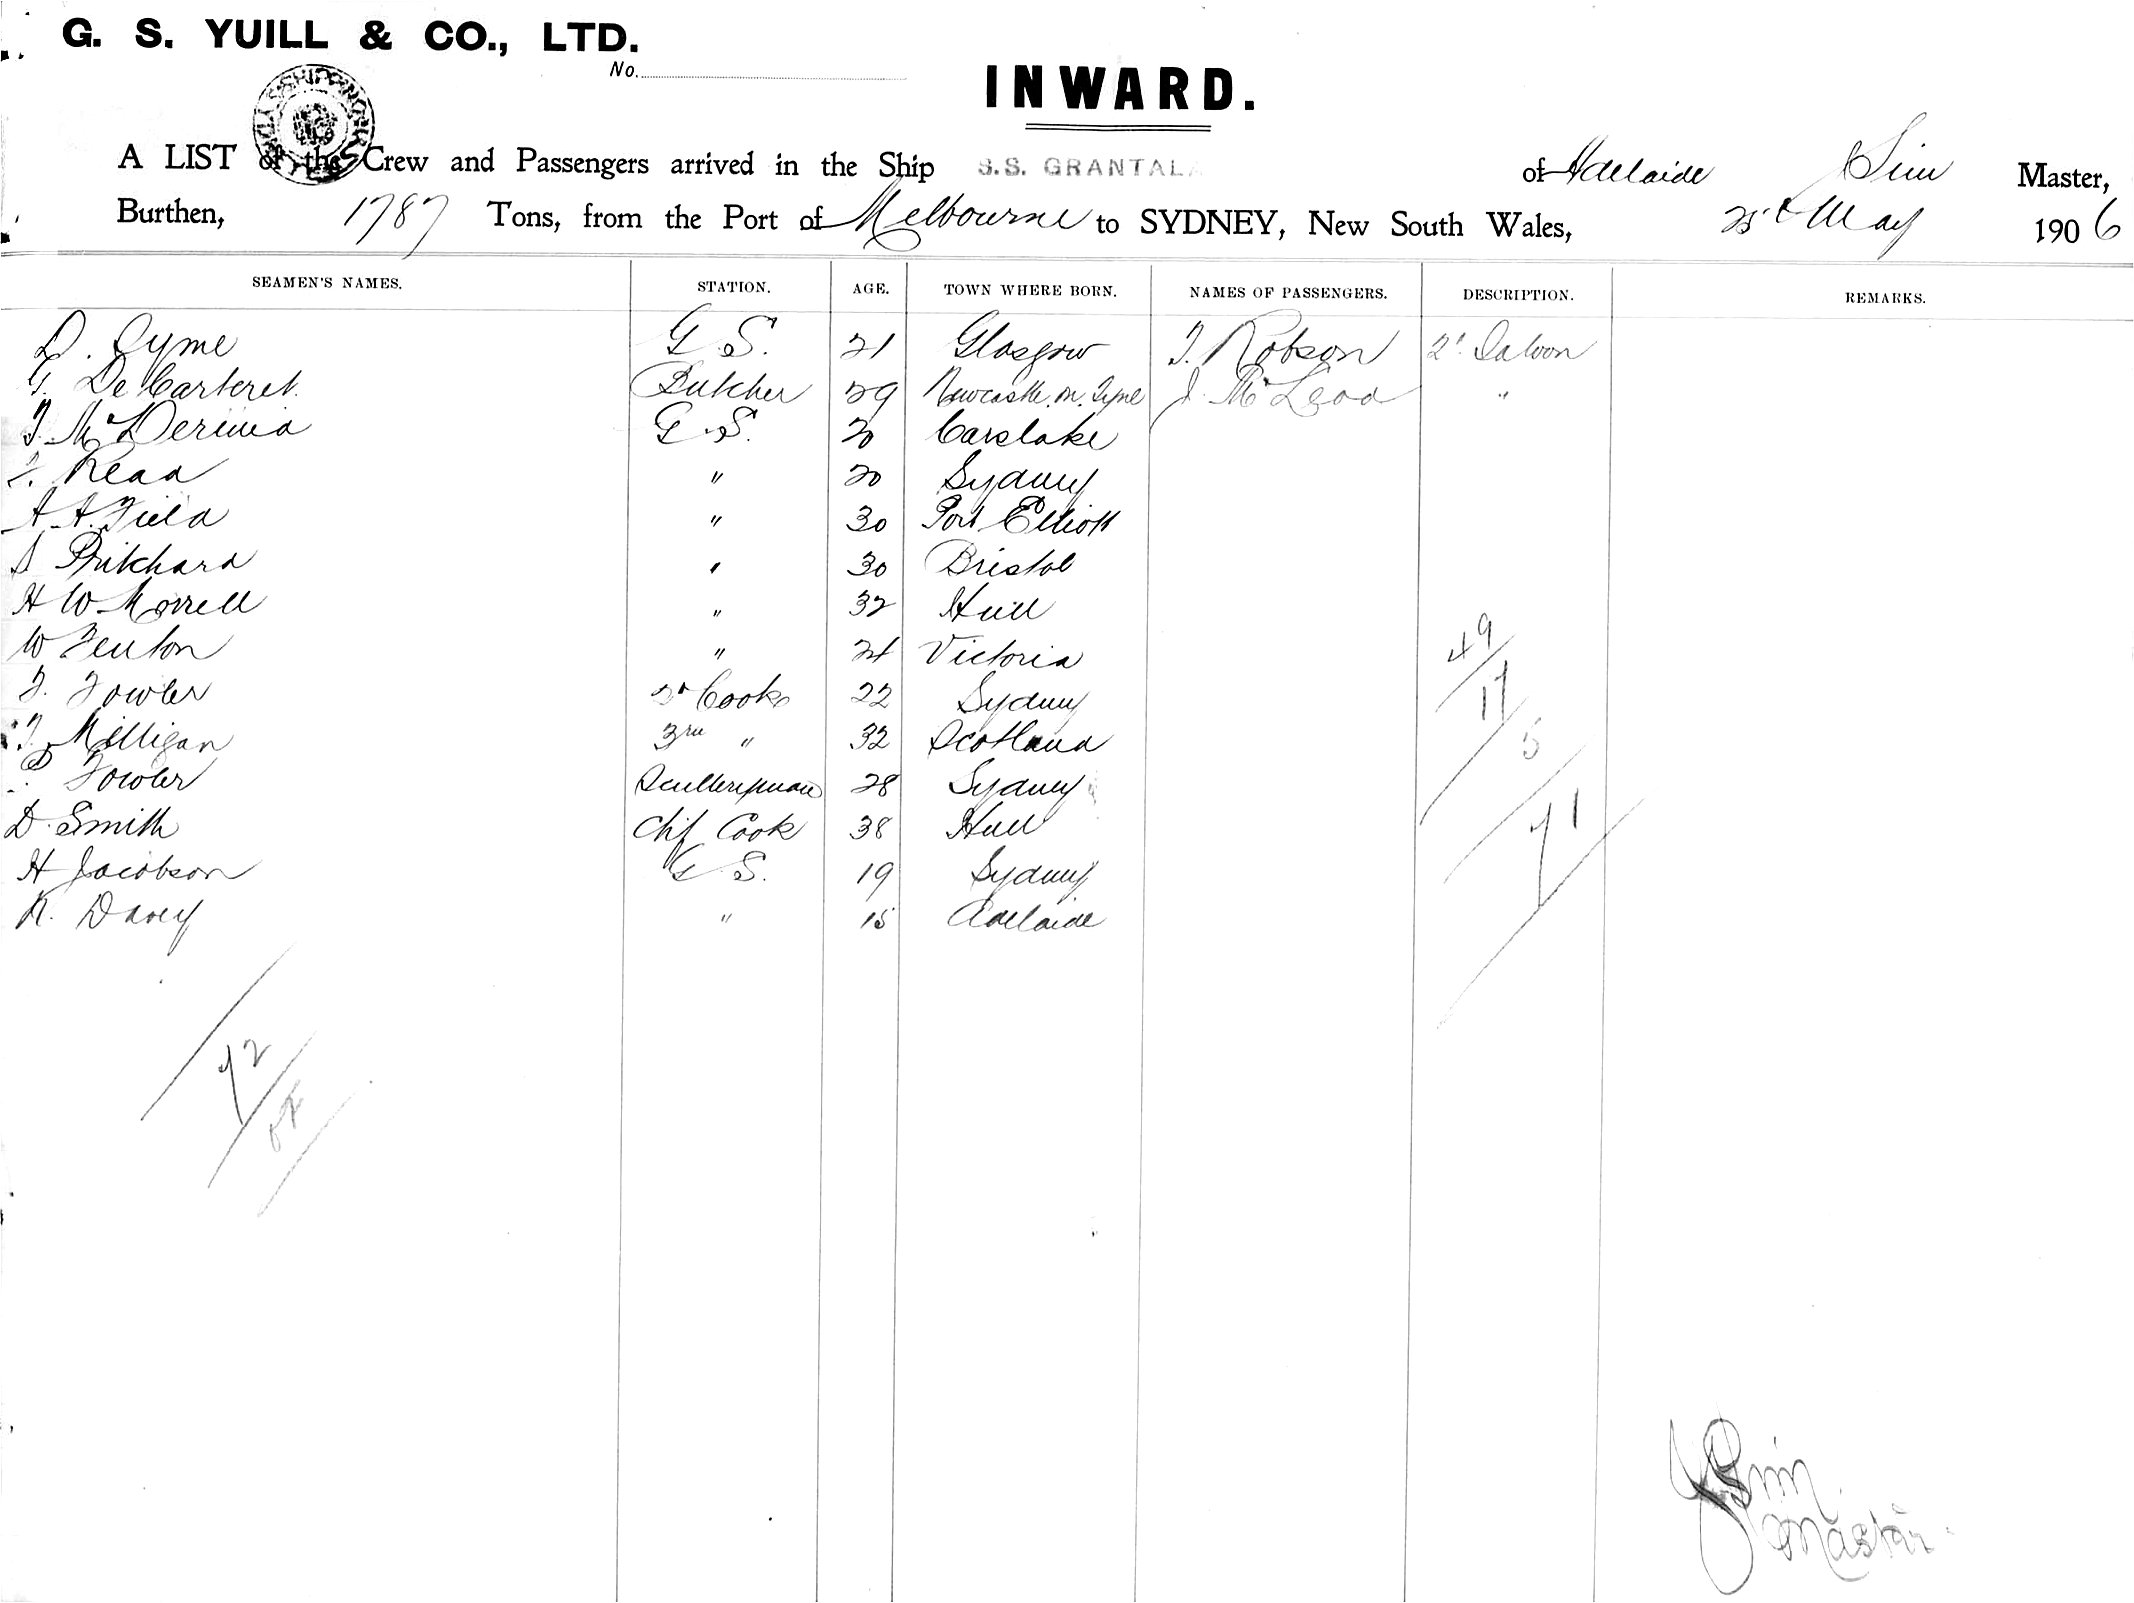 G. S. YUILL & CO., LTD.
No.
INWARD.
A LIST of the Crew and Passengers arrived in the Ship S.S. GRANTALA of Adelaide Sim Master,
Burthen, 1787 Tons, from the Port of Melbourne to SYDNEY, New South Wales, 25th May 1906
SEAMEN'S NAMES. STATION. AGE. TOWN WHERE BORN. NAMES OF PASSENGERS. DESCRIPTION. REMARKS.
D. Syme G S. 21 Glasgow T. Robson 2d Saloon
G. De Carteret Butcher 29 Newcastle on Tyne J. McLeod "
T. McDermid G S. 20 Carslake
Read " 20 Sydney
A A. Field " 30 Port Elliott
S Pritchard " 30 Bristol
H W Morrell " 32 Hull
W Fenton " 21 Victoria
F. Fowler 2d Cook 22 Sydney
T. Milligan 3rd " 32 Scotland
P Fowler Sculleryman 28 Sydney
D. Smith Chf Cook 38 Hull
H Jacobson G S. 19 Sydney
R. Davey " 15 Adelaide
49
17
5
71
72
J Sim
Master